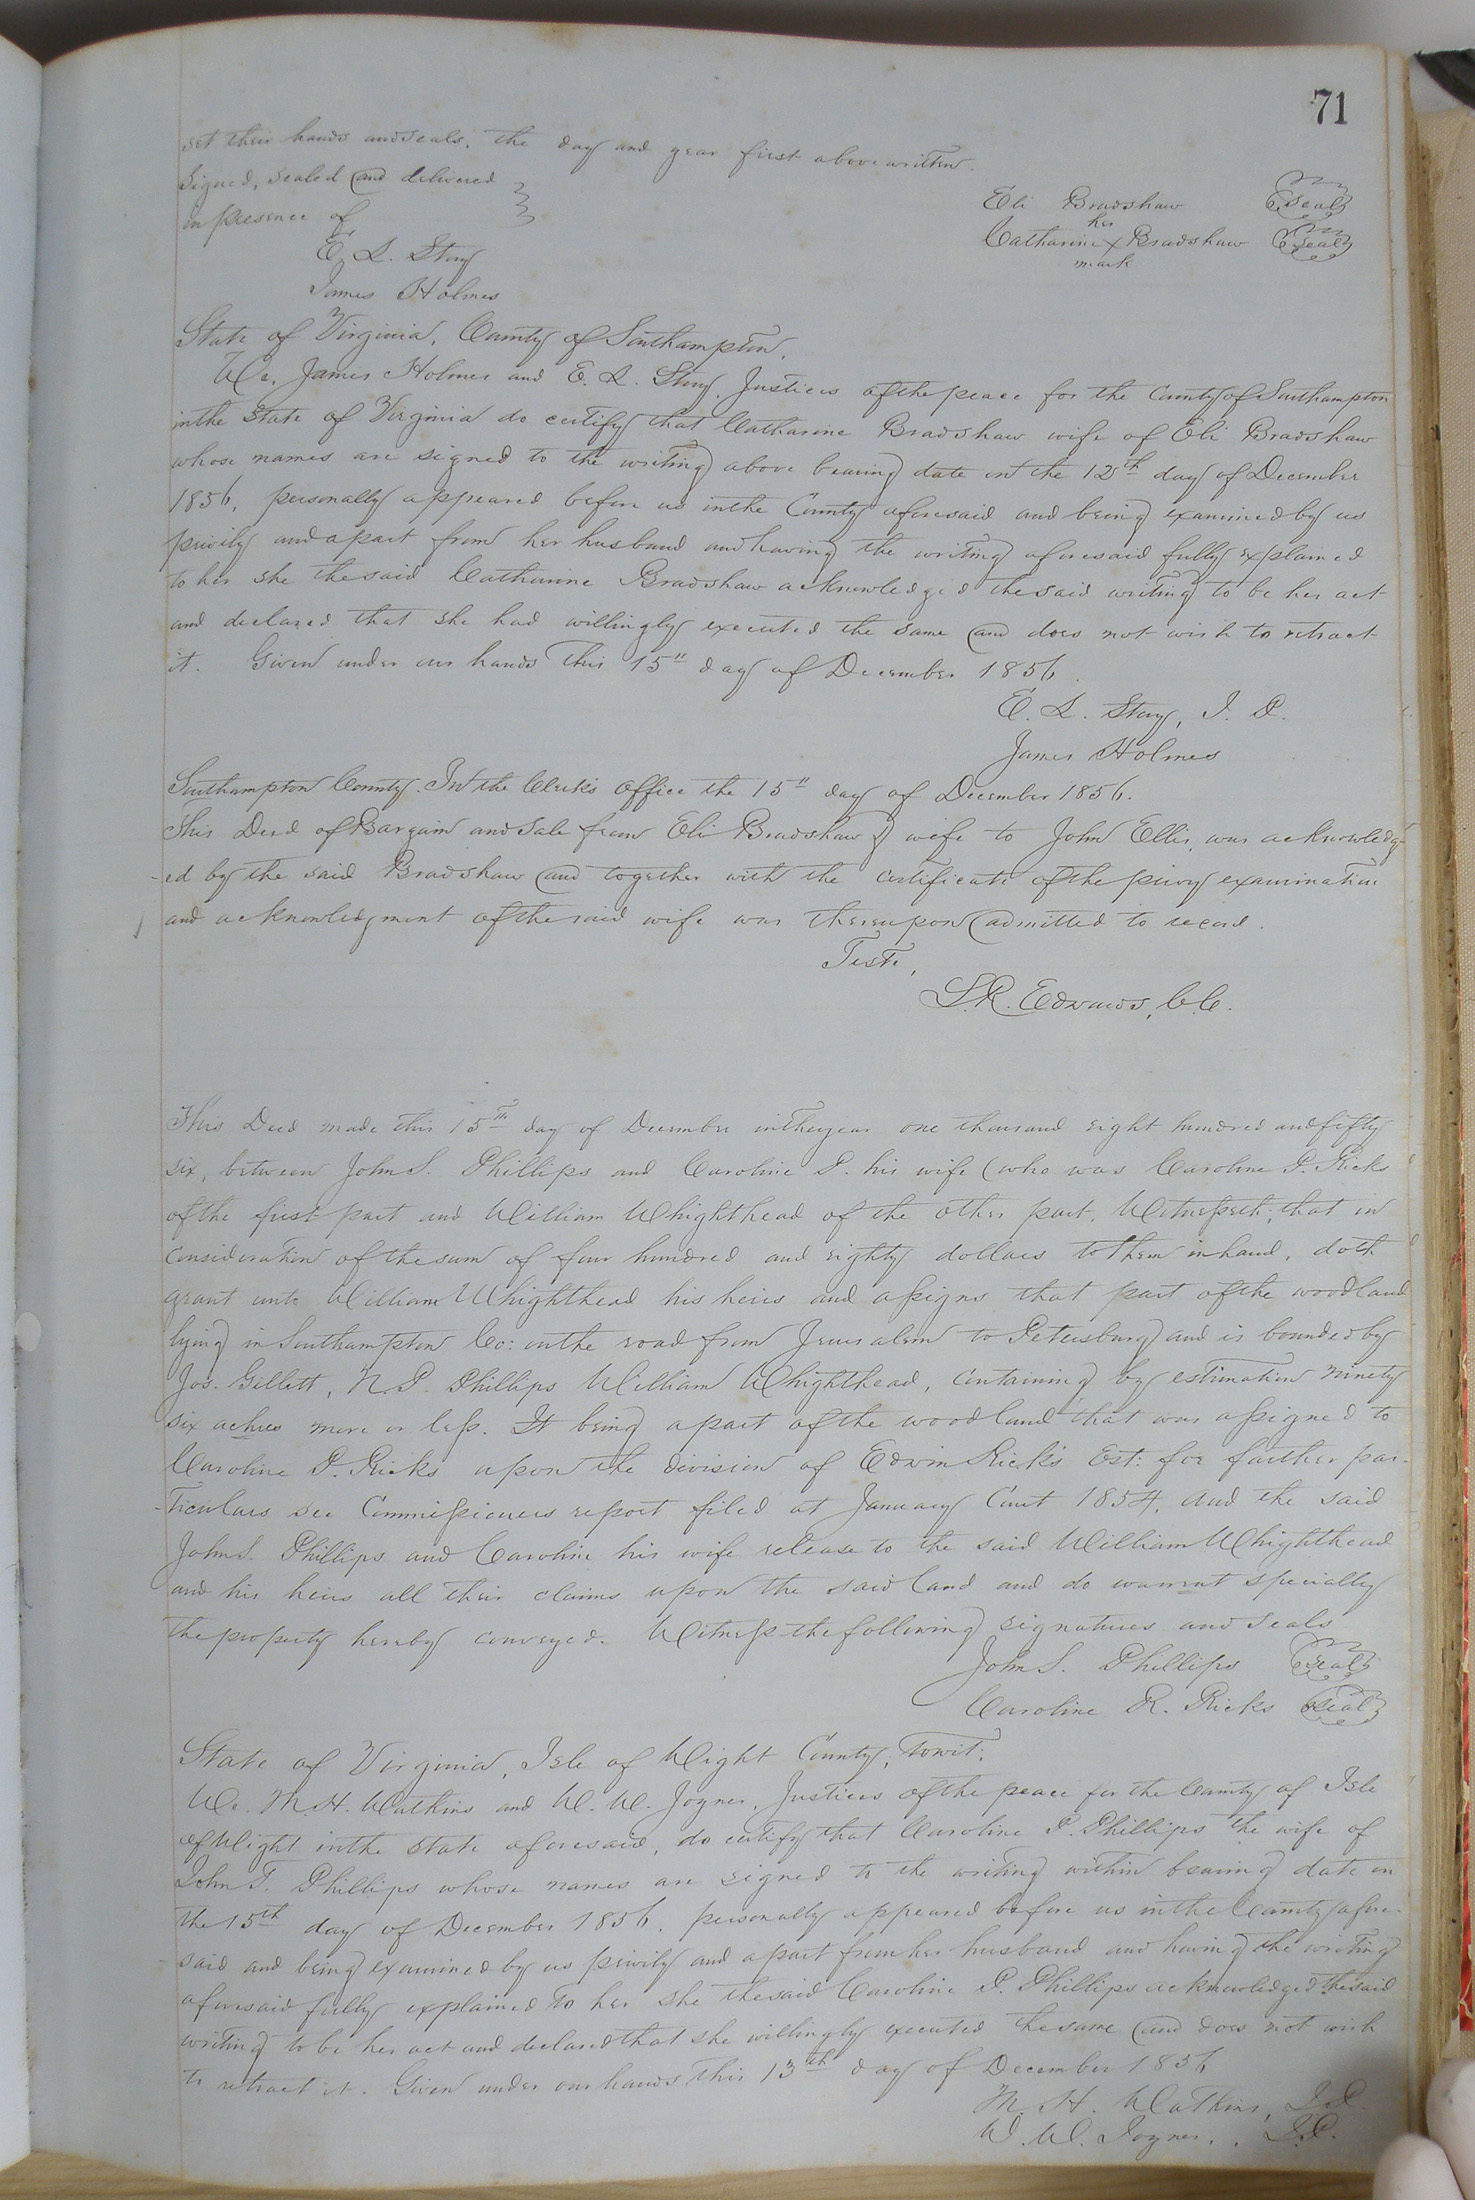 71
set their hands and seals, the day and year first above written.
Signed, sealed and delivered
in presence of
Eli Bradshaw Seal
her
Catharine X Bradshaw Seal
mark
E. L. Story
James Holmes
State of Virginia, County of Southampton,
We, James Holmes and E. L. Story, Justices of the peace for the County of Southampton
in the State of Virginia do certify that Catharine Bradshaw wife of Eli Bradshaw
whose names are signed to the writing above bearing date on the 15th day of December
1856, personally appeared before us in the County aforesaid and being examined by us
privily and apart from her husband and having the writing aforesaid fully explained
to her she the said Catharine Bradshaw acknowledged the said writing to be her act
and declared that she had willingly executed the same and does not wish to retract
it. Given under our hands this 15" day of December 1856.
E. L. Story, J. P.
James Holmes
Southampton County. In the Clerk's Office the 15" day of December 1856.
This Deed of Bargain and Sale from Eli Bradshaw & wife to John Ellis, was acknowledg-
-ed by the said Bradshaw and together with the certificate of the privy examination
and acknowledgment of the said wife was thereupon admitted to record.
Teste,
L. R. Edwards, C.C.
This Deed made this 15th day of December in the year one thousand eight hundred and fifty
six, between John S. Phillips and Caroline P. his wife (who was Caroline P. Ricks
of the first part and William Whighthead of the other part, Witnesseth; that in
consideration of the sum of four hundred and eighty dollars to them in hand, doth
grant unto William Whighthead his heirs and assigns that part of the woodland
lying in Southampton Co: on the road from Jerusalem to Petersburg and is bounded by
Jos. Gillett, N. P. Phillips William Whighthead, containing by estimation ninety
six achres more or less. It being a part of the woodland that was assigned to
Caroline P. Ricks upon the division of Edwin Rick's Est: for further par-
-ticulars see Commissioners report filed at January Court 1854, and the said
John S. Phillips and Caroline his wife release to the said William Whighthead
and his heirs all their claims upon the said land and do warrent specially
the property hereby conveyed. Witness the following signatures and seals
John S. Phillips Seal
Caroline R. Ricks Seal
State of Virginia, Isle of Wight County, towit;
We. M. H. Watkins and W. W. Joyner, Justices of the peace for the County of Isle
of Wight in the State aforesaid, do certify that Caroline P. Phillips the wife of
John T. Phillips whose names are signed to the writing within bearing date on
the 15th day of December 1856. personally appeared before us in the County afore-
said and being examined by us privily and apart from her husband and having the writing
aforesaid fully explained to her she the said Caroline P. Phillips acknowledged the said
writing to be her act and declared that she willingly executed the same and does not wish
to retract it. Given under our hands this 13th day of December 1856
M. H. Watkins, J.P.
W. W. Joyner, J.P.